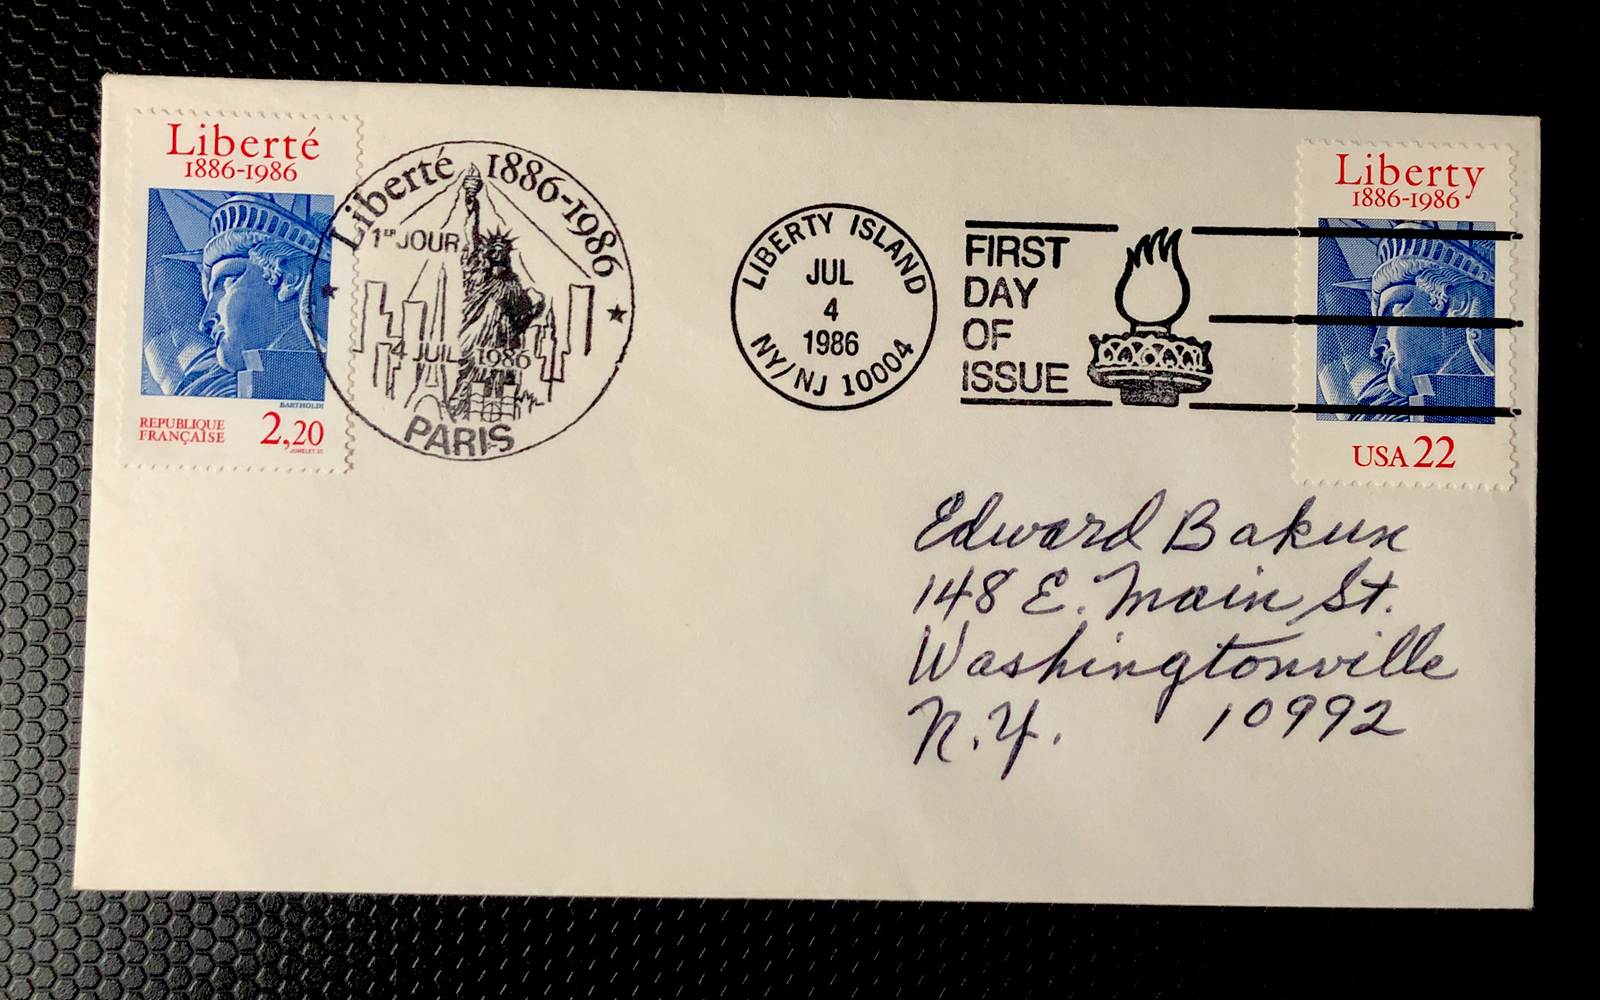 Liberté
1886-1986
BARTHOLDI
REPUBLIQUE
FRANÇAISE
2,20
JUMELET
Liberté 1886-1986
1ER JOUR
4 JUIL 1986
PARIS
LIBERTY ISLAND
JUL
4
1986
NY/NJ 10004
FIRST
DAY
OF
ISSUE
Liberty
1886-1986
USA 22
Edward Bakun
148 E. Main St.
Washingtonville
N.Y. 10992